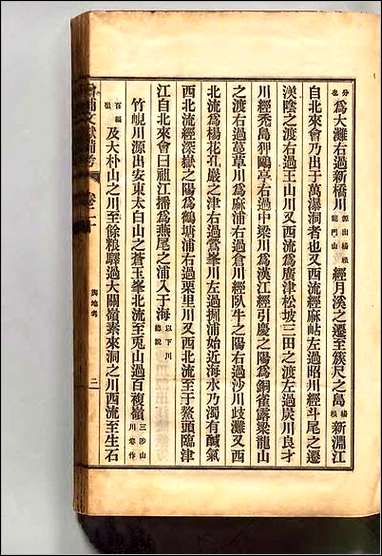 分也 為大灘右過新橋川 源出楊根龍門山 經月溪之遷至簇尺之島 楊根 新淵江
自北來會乃出于萬瀑洞者也又西流經麻帖左過昭川經斗尾之遷
渼陰之渡右過王山川又西流為廣津松坡三田之渡左過炭川良才
川經禿島狎鷗亭右過中梁川為漢江經引慶之陽為銅雀露梁龍山
之渡右過蔓草川為麻浦右過倉川經臥牛之陽右過沙川歧灘又西
北流為楊花孔巖之津右過鶯峯川左過掘浦始近海水乃濁有鹹氣
西北流經深嶽之陽為鶴塘浦右過栗里川又西北流至于鰲頭臨津
江自北來會曰祖江播為燕尾之浦入于海 以下川總說
竹峴川源出安東太白山之蒼玉峯北流至兎山過百複嶺 三涉山川卷作
百福嶺 及大朴山之川至餘粮驛過大關嶺素來洞之川西流至生石
增補文獻備考 卷二十 輿地考 二